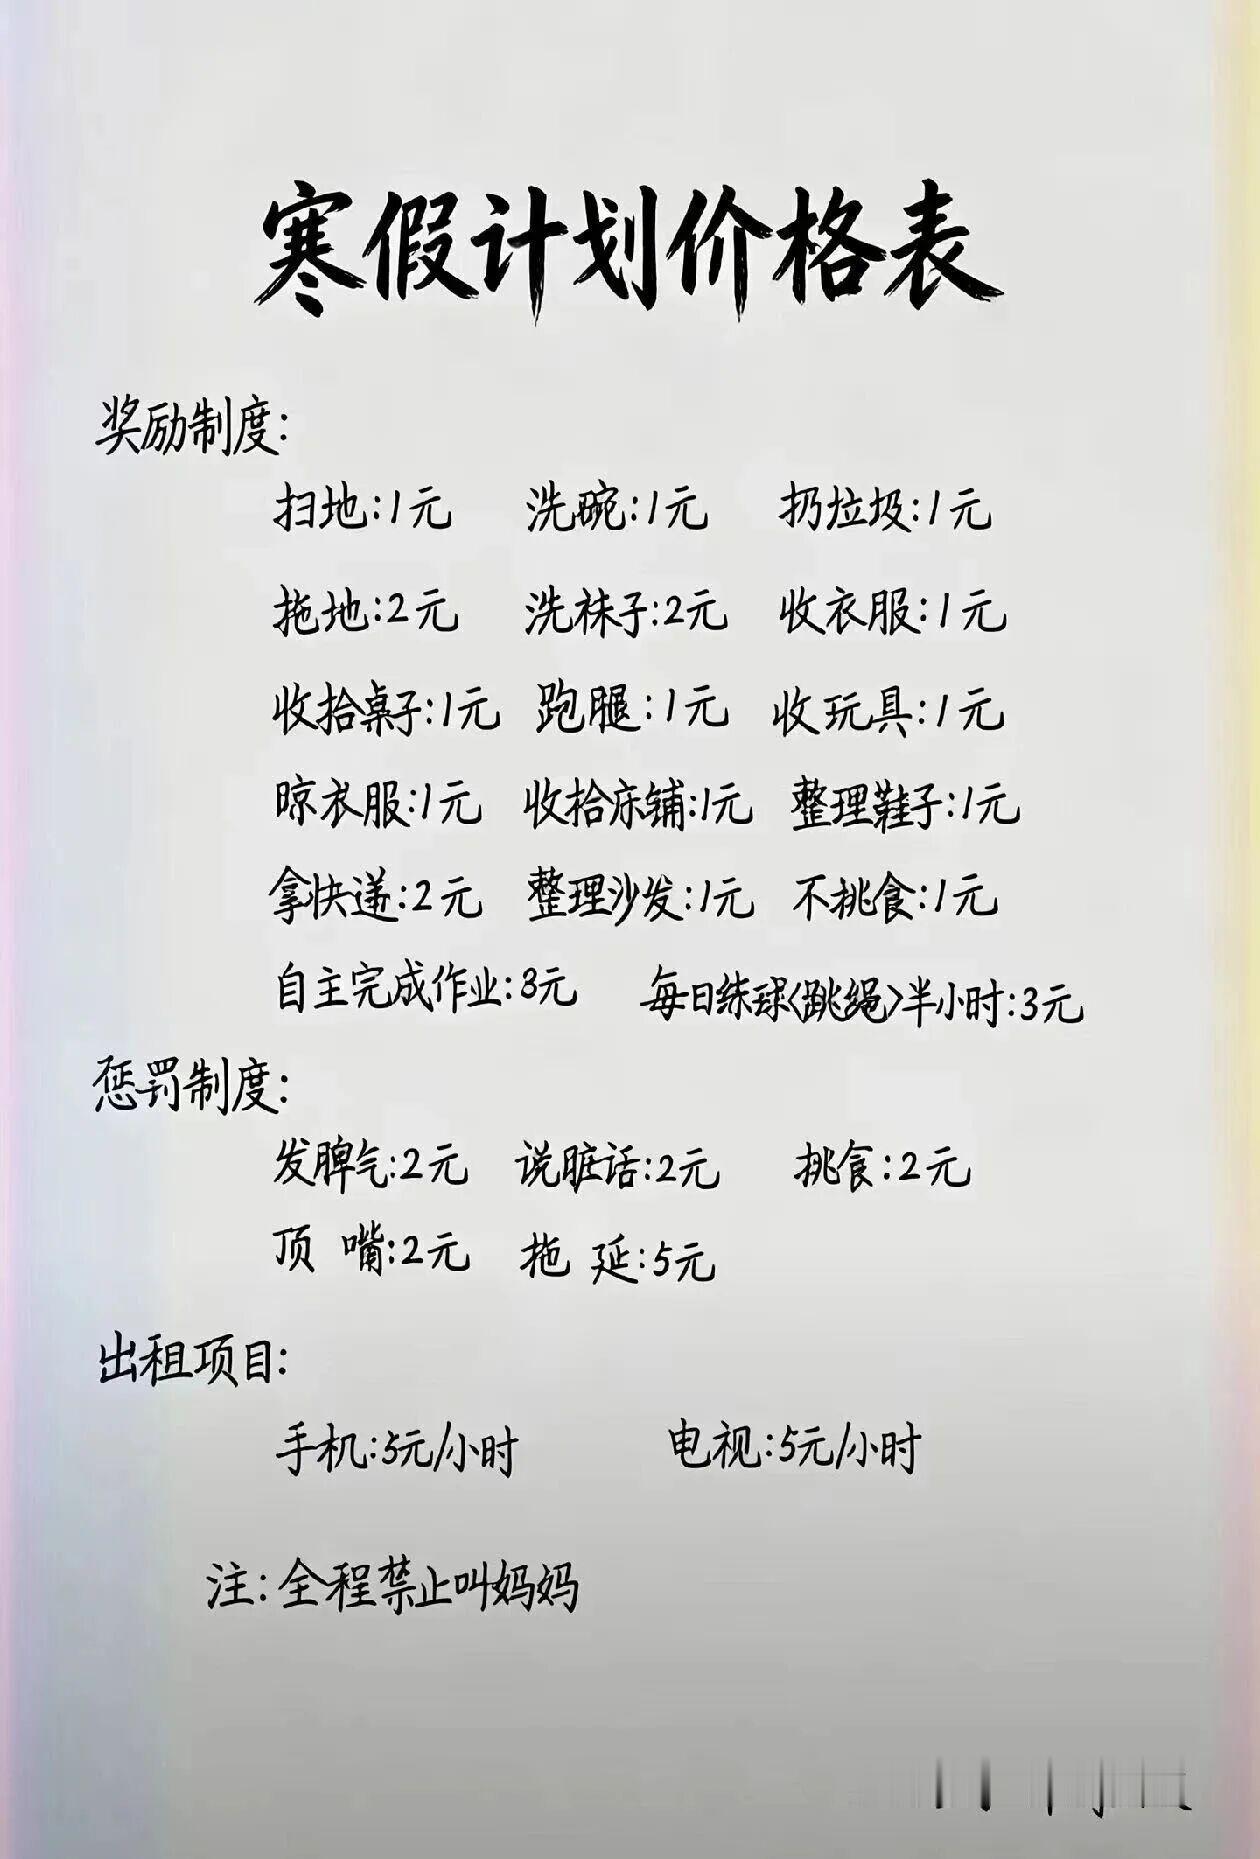 寒假计划价格表
奖励制度:
扫地:1元 洗碗:1元 扔垃圾:1元
拖地:2元 洗袜子:2元 收衣服:1元
收拾桌子:1元 跑腿:1元 收玩具:1元
晾衣服:1元 收拾床铺:1元 整理鞋子:1元
拿快递:2元 整理沙发:1元 不挑食:1元
自主完成作业:3元 每日练球(跳绳)半小时:3元
惩罚制度:
发脾气:2元 说脏话:2元 挑食:2元
顶 嘴:2元 拖 延:5元
出租项目:
手机:5元/小时 电视:5元/小时
注:全程禁止叫妈妈